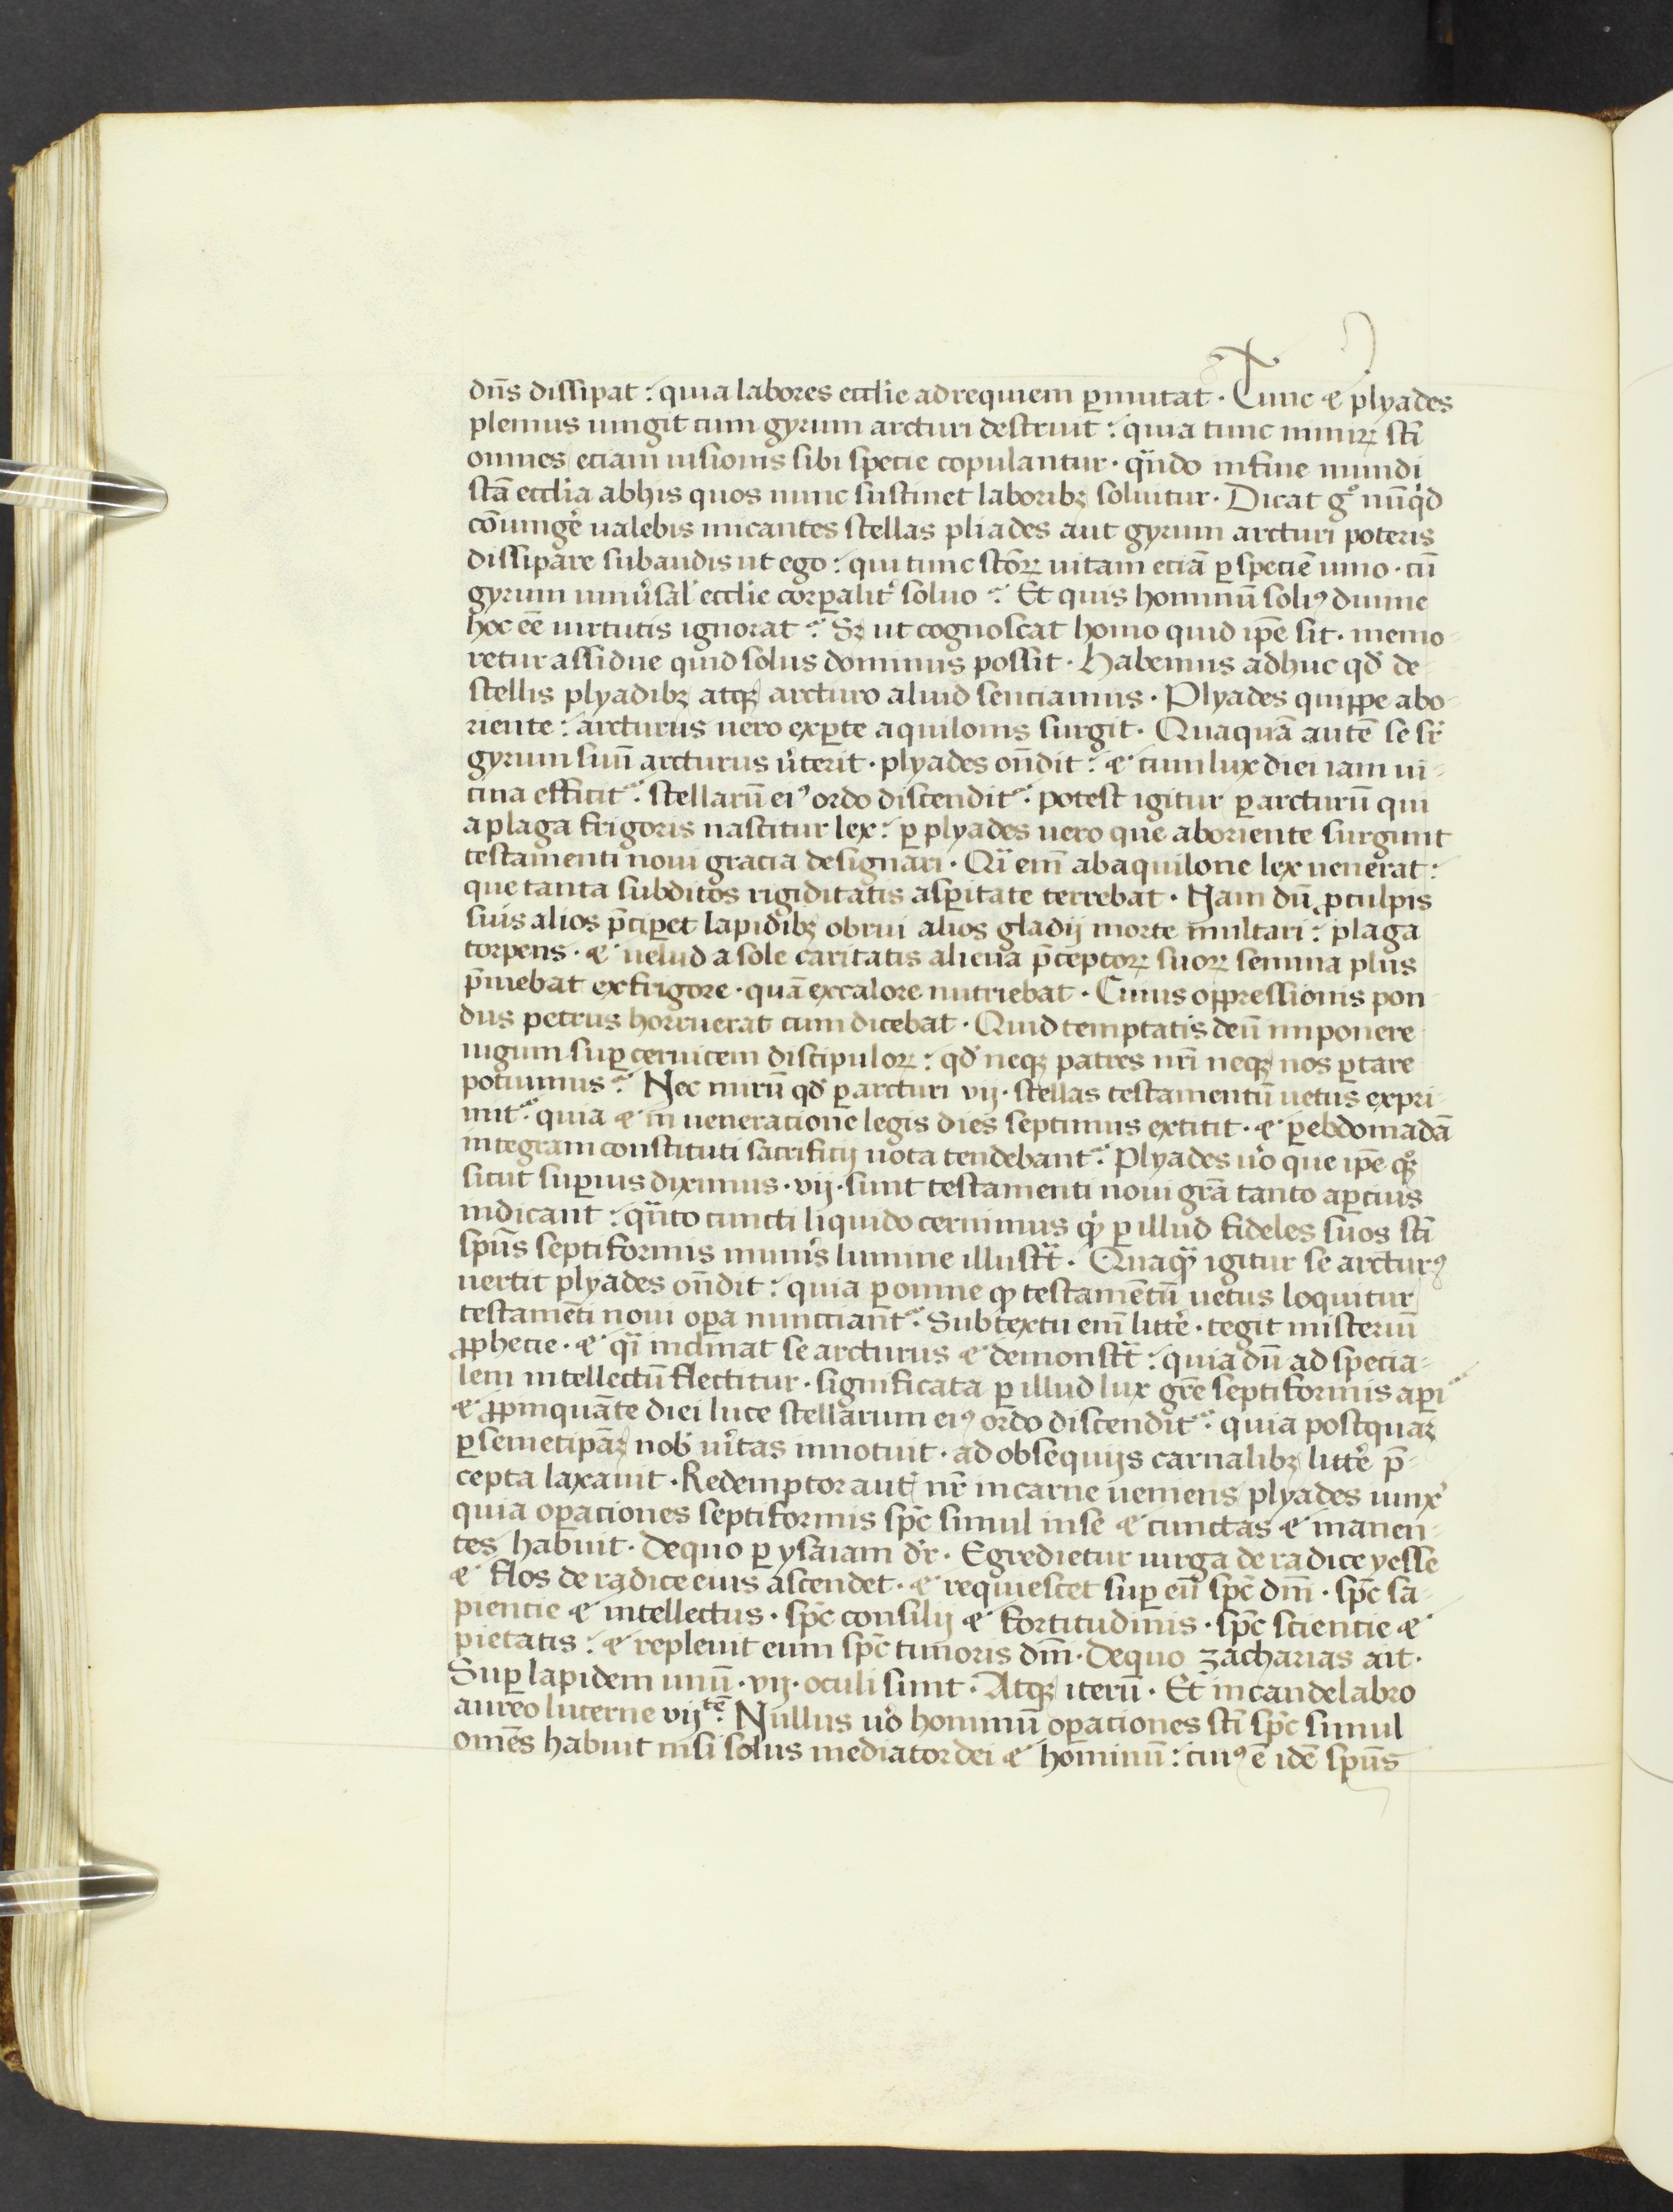 dn̄s dissipat : quia labores eccl̄ie ad requiem ꝑmutat · Tunc ⁊ plyades
plenius iungit cum gyrum arcturi destruit : quia tunc nimiꝝ sc̄ti
omnes eciam uisionis sibi specie copulantur · qn̄do in fine mundi
sc̄tā eccl̄ia ab his quos nunc sustinet laboribꝫ soluitur · Dicat gͦ nūq̇d
cōiungē ualebis micantes stellas pliades aut gyrum arcturi poteris
dissipare subaudis ut ego : qui tunc sc̄toꝝ uitam eciā ꝑ speciē unio · cū
gyrum uniūsal̕ eccl̄ie corꝑalit̕ soluo ؟ Et quis hominū solꝰ diuine
hoc eē uirtutis ignorat ؟ Sꝫ ut cognoscat homo quid ip̄e sit · memo-
retur assidue quid solus dominus possit · Habemus adhuc qd̕ de
stellis plyadibꝫ atqꝫ arcturo aliud senciamus · Plyades quippe ab o-
riente : arcturus uero ex ꝑte aquilonis surgit · Quaquā autē se ꝑ
gyrum suū arcturus ūterit · plyades on̄dit : ⁊ cum lux diei iam ui-
cina efficit᷑ · stellarū eiꝰ ordo discendit᷑ · potest igitur ꝑ arcturū qui
a plaga frigoris nascitur lex : ꝑ plyades uero que ab oriente surgunt
testamenti noui gracia designari · Qͥ eni̅ ab aquilone lex uenerat :
que tanta subditos rigiditatis asꝑitate terrebat · Nam dū ꝓ culpis
suis alios p̄ciꝑet lapidibꝫ obrui alios gladij morte multari : plaga
torpens · ⁊ uelud a sole caritatis aliena p̄ceptoꝝ suoꝝ semina plus
p̄mebat ex frigore · quā ex calore nutriebat · Cuius oppressionis pon
dus petrus horruerat cum dicebat · Quid temptatis deū imponere
iugum suꝑ ceruicem discipuloꝝ : qd̕ neqꝫ patres nr̄i neqꝫ nos ꝑtare
potuimus ؟ Nec mirū qd̕ ꝑ arcturi vij · stellas testamentū uetus expri
mit᷑ · quia ⁊ in ueneracione legis dies septimus extitit · ⁊ ꝑ ebdomadā
integram constituti sacrificij uota tendebant᷑ · Plyades u̇o que ip̄e qͦꝫ
sicut suꝑius diximus · vij · sunt testamenti noui gr̄a tanto aꝑcius
indicant : qn̄to cuncti liquido cernimus ꝙ ꝑ illud fideles suos sc̄ti
sp̄us septiformis mun̕is lumine illustͣt · Quaꝙ igitur se arcturꝰ
uertit plyades on̄dit : quia ꝑ omne ꝙ testamētū uetus loquitur
testamēti noui oꝑa nuncciant᷑ · Sub textu eni̅ litte̕ · tegit misteriū
ꝓphecie · ⁊ qͣi inclinat se arcturus ⁊ demonstͣt : quia dū ad specia-
lem intellectū flectitur · significata ꝑ illud lux gr̄e septiformis aꝑi᷑
⁊ ꝓpinquāte diei luce stellarum eiꝰ ordo discendit᷑ · quia postquaꝫ
ꝑ semetipāꝫ nob̕ u̇itas innotuit · ad obsequijs carnalibꝫ litte̕ p̄-
cepta laxauit · Redemptor aut̕ nr̄ in carne ueniens plyades iunx̕
quia oꝑaciones septiformis sp̄c simul in se ⁊ cunctas ⁊ manen-
tes habuit · De quo ꝑ ysaiam dr̄ · Egredietur uirga de radice yesse
⁊ flos de radice eius ascendet · ⁊ requiescet suꝑ eū sp̄c dn̄i · sp̄c sa-
piencie ⁊ intellectus · sp̄c consilij ⁊ fortitudinis · sp̄c sciencie ⁊
pietatis : ⁊ repleuit eum sp̄c timoris dn̄i · De quo zacharias ait ·
Suꝑ lapidem unū · vij · oculi sunt · Atqꝫ iterū · Et in candelabro
aureo lucerne vijtē · Nullus u̇o hominū oꝑaciones sc̄ti sp̄c simul
omēs habuit nisi solus mediator dei ⁊ hominū : cuiꝰ ē idē sp̄us